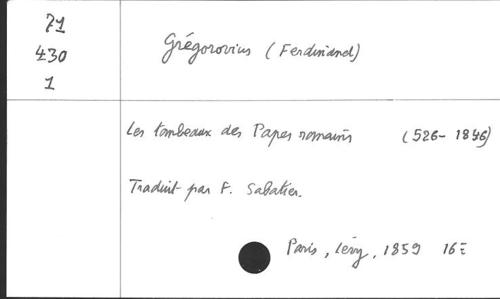 71
430
1
Grégorovius (Ferdinand)
Les tombeaux des Papes romains (526-1846)
Traduit par F. Sabatier.
Paris, Lévy, 1859 16º